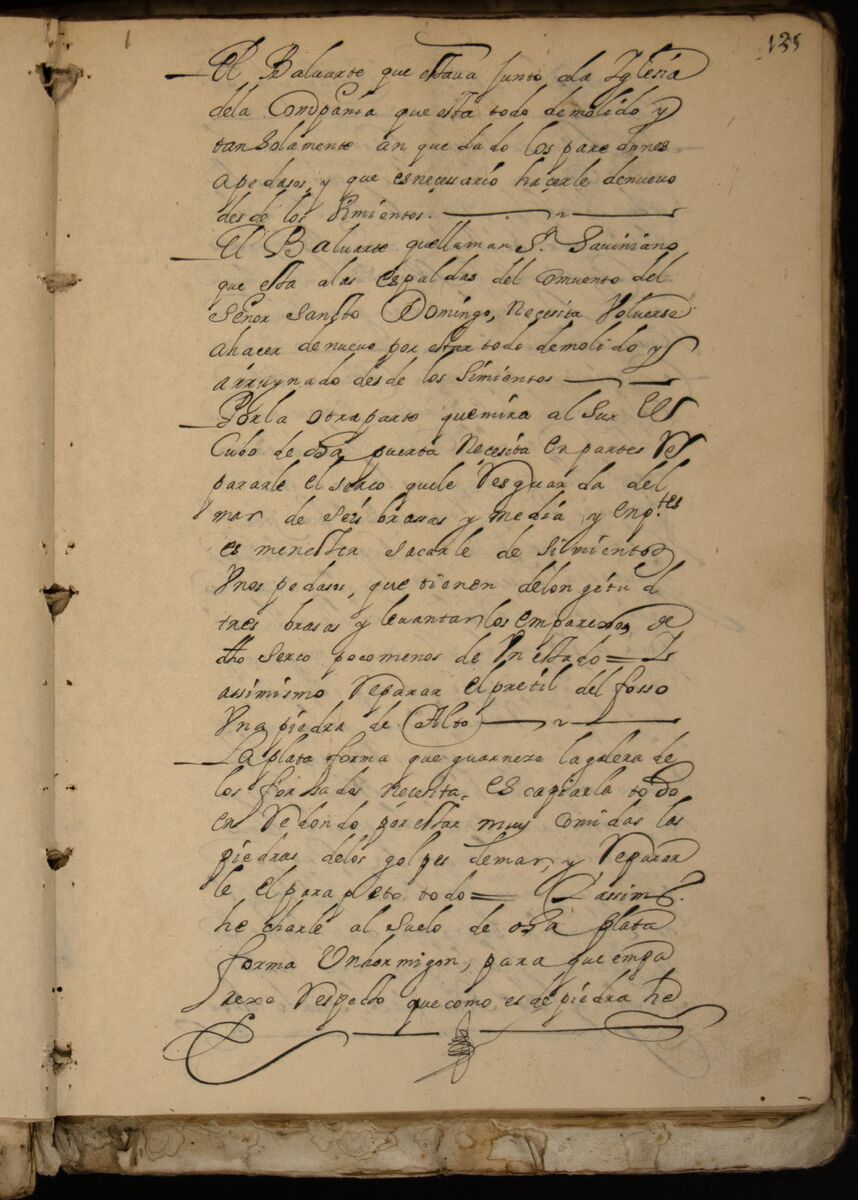 125
El Baluarte que estava Junto ala Iglesia
dela Compañia que esta todo demolido y
tan Solamente an quedado los paredones
apedasos, y que es necessario hacerle denuevo
desde los Simientos.
El Baluarte quellaman Sn. Saviniano
que esta alas espaldas del Convento del
Señor Sancto Domingo, Necesita Volverse
ahacer denuevo por estar todo demolido y
arruynado desde los Simientos
Por la otra parte que mira al Sur El
Cubo de dha puerta Necesita en partes Re
pararle el serco quele Resguarda del
mar de seis brasas y media y enp.tes
es menester sacarle de Simientos
Vnos pedasos, que tienen de longitud
tres brasas y levantar los emparexos de
dho serco poco menos de Vn estado = Y
assimismo Reparar el pretil del fosso
Vna piedra de Alto
La plata forma que guarnese la galera de
los forsados necesita, escapiarla todo
en Redondo por estar muy comidas las
piedras delos golpes del mar, y Reparar
le el parapeto todo = Y assim.
hecharle al Suelo de dha plata
forma Vn hormigon, para que empa
rexe Respecto que como es de piedra he